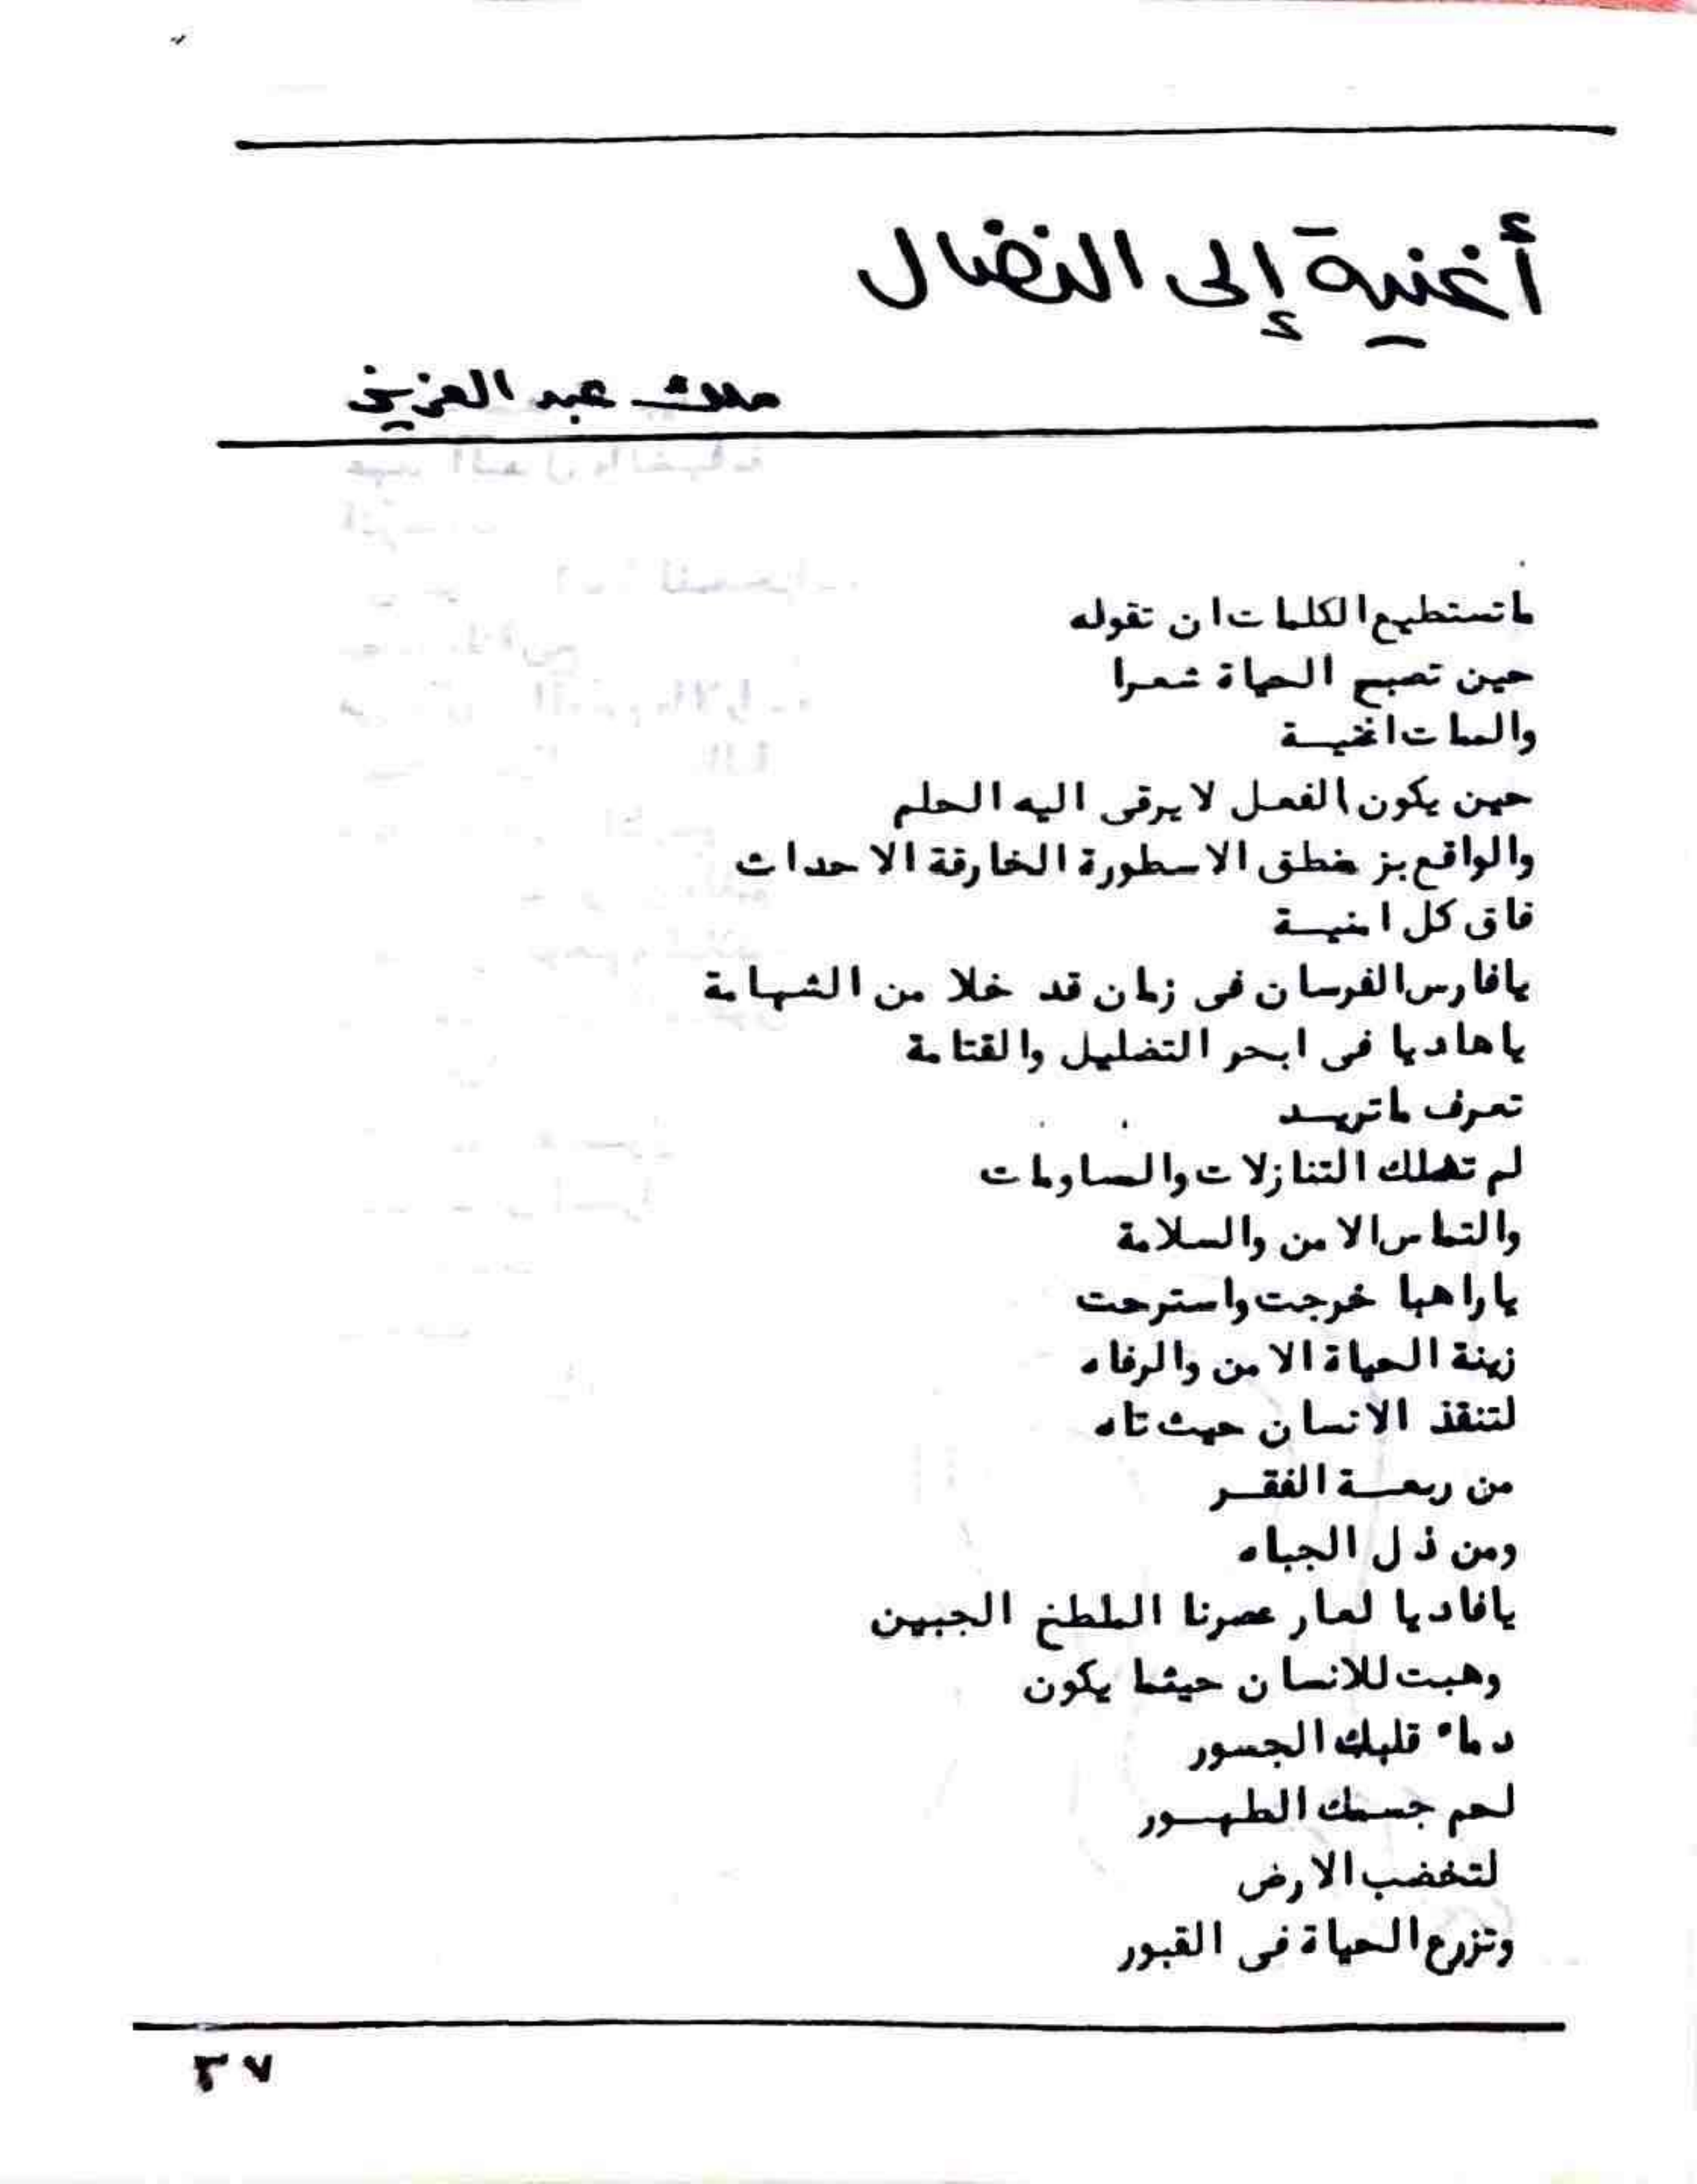 أغنية إلى النضال
ملك عبد العزيز
ماتستطيع الكلمات ان تقوله
حين تصبح الحياة شعرا
والممات اغنيـة
حين يكون الفعل لا يرقى اليه الحلم
والواقع بز منطق الاسطورة الخارقة الاحداث
فاق كل امنيـة
يافارس الفرسان فى زمان قد خلا من الشهامة
ياهاديا فى ابحر التضليل والقتامة
تعرف ماتريـد
لم تهلك التنازلات والمساومات
والتماس الامن والسلامة
ياراهبا خرجت واسترحت
زينة الحياة الامن والرفاه
لتنقذ الانسان حيث تاه
من ربعـة الفقـر
ومن ذل الجباه
يافاديا لعار عصرنا الملطخ الجبين
وهبت للانسان حيثما يكون
دماء قلبك الجسور
لحم جسمك الطهـور
لتخضب الارض
وتزرع الحياة فى القبور
٣٧